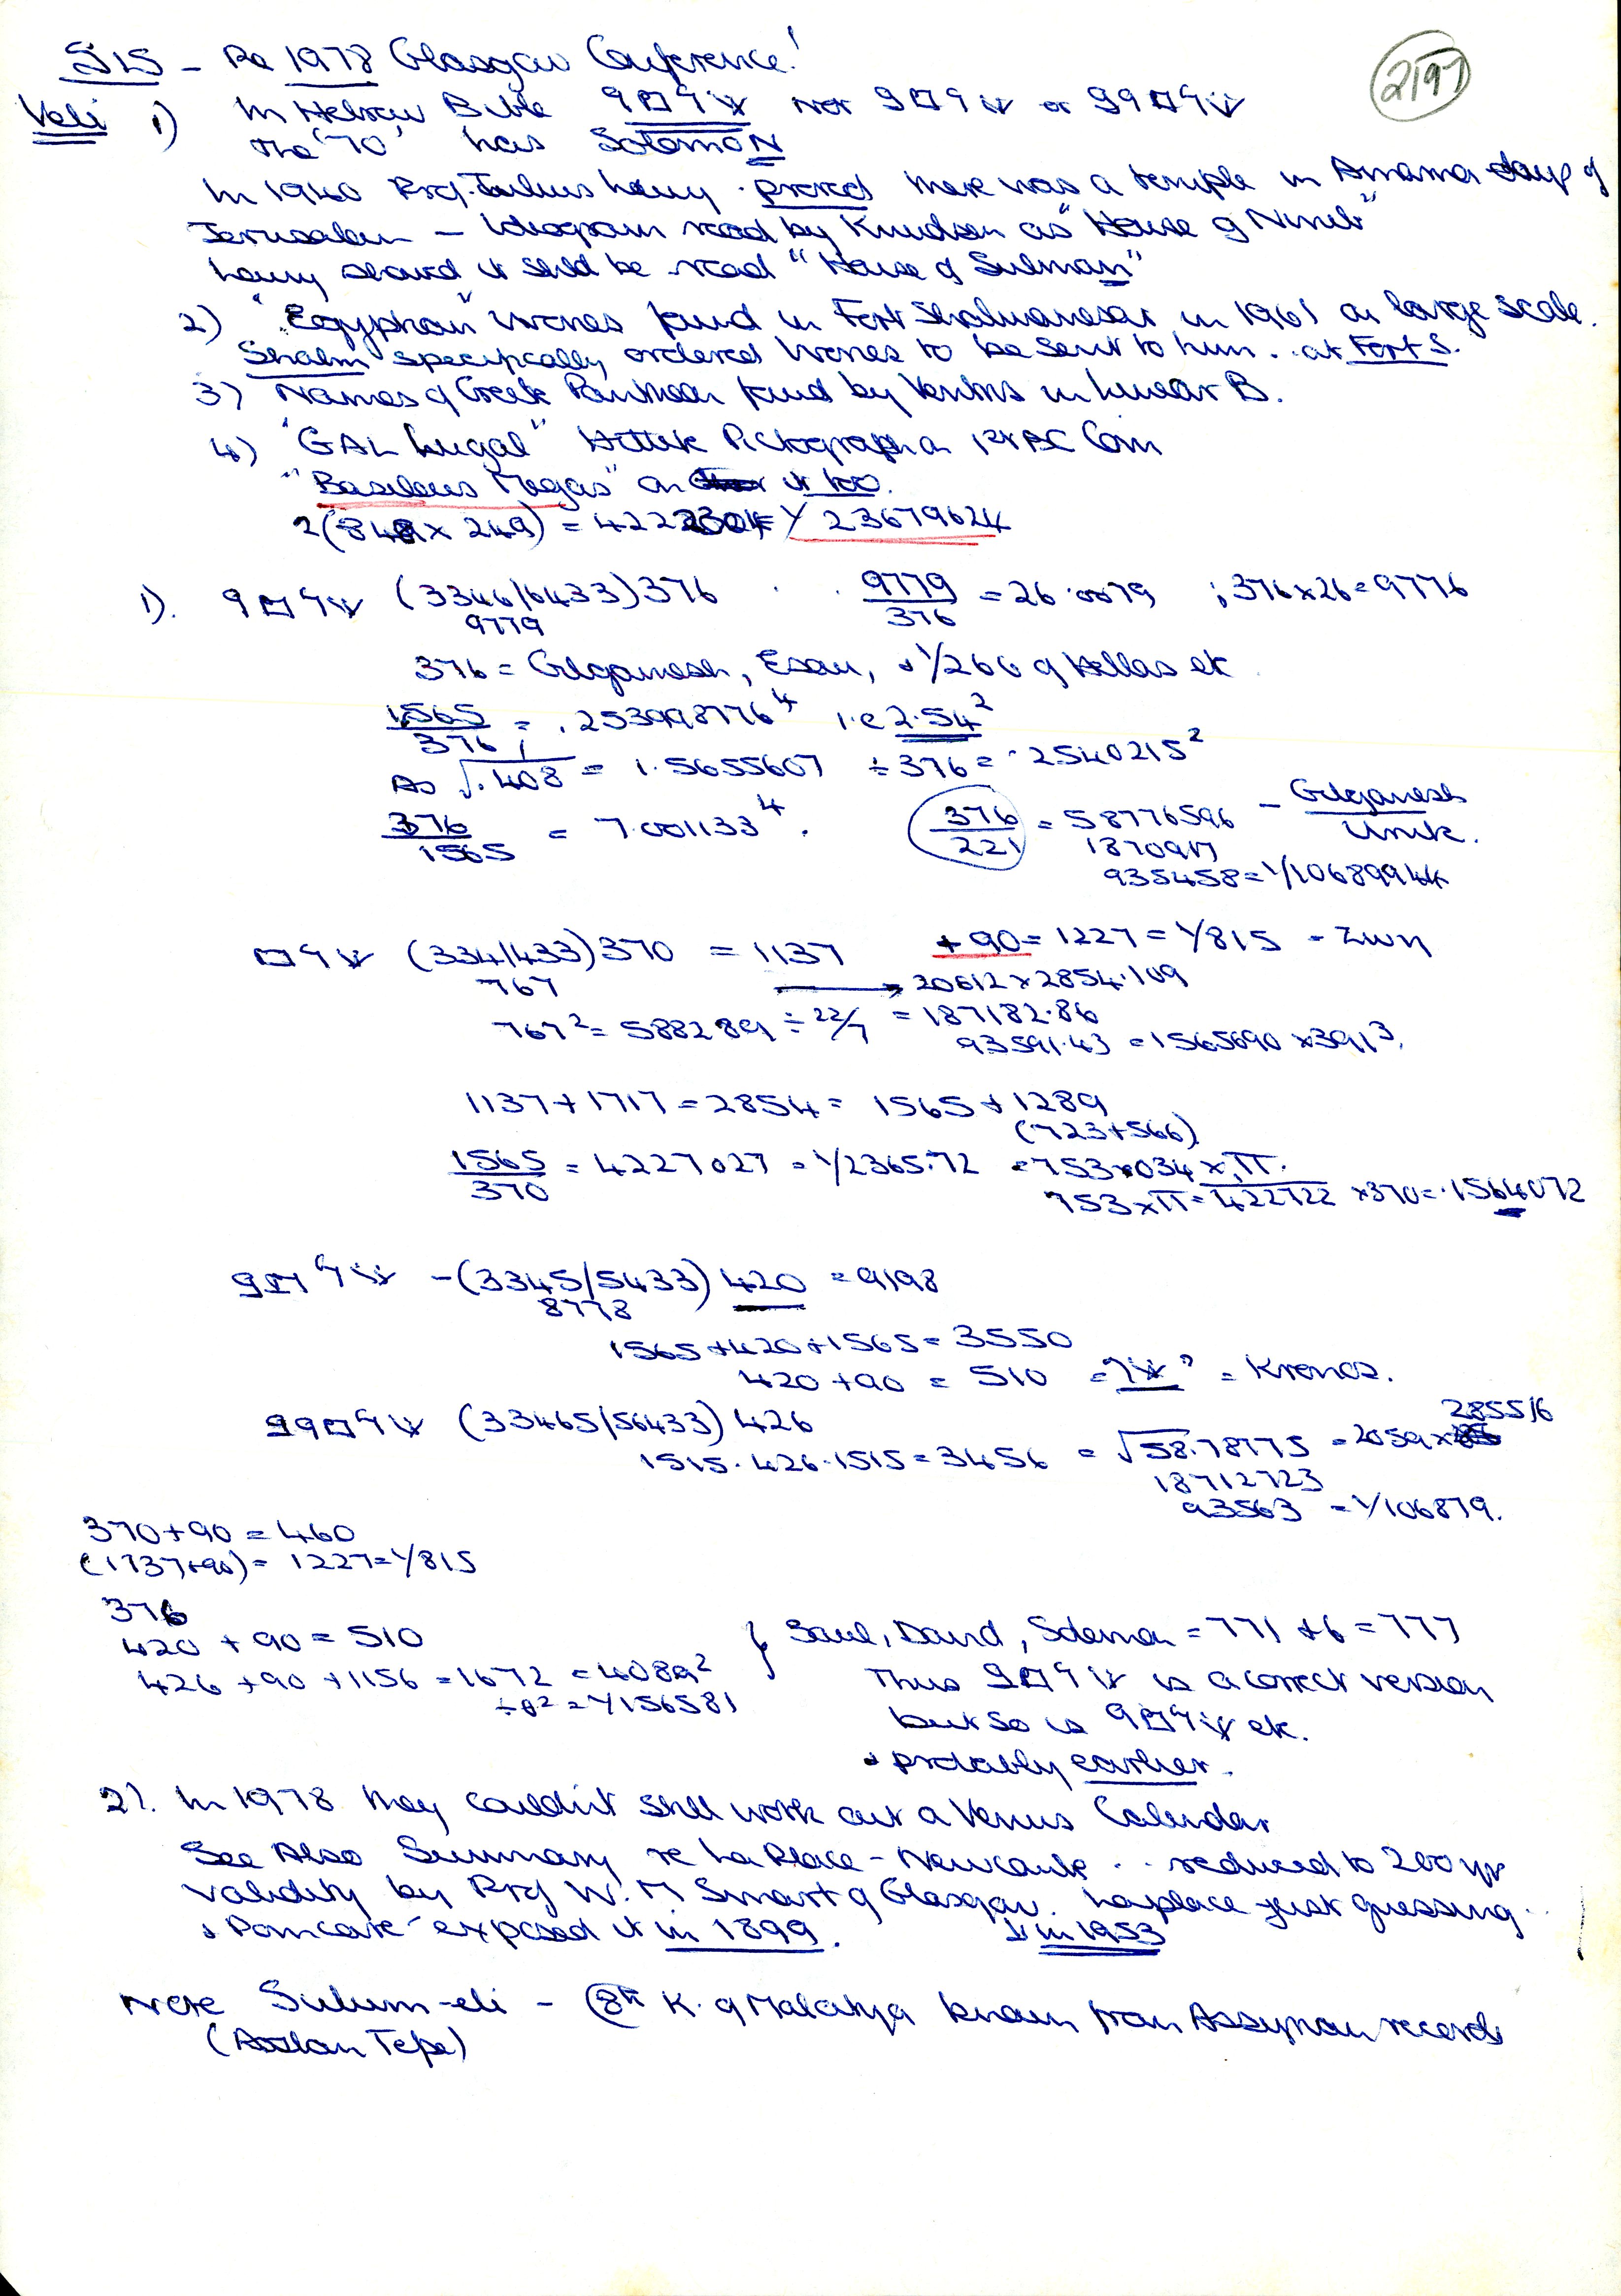 SIS - Re 1978 Glasgow Conference!
2197
Veli 1) In Hebrew Bible 9◻9w not 9◻9w or 99◻9w
The '70' has SolomoN
In 1940 Prof. Julius Lewy proved there was a temple in Amarna days of
Jerusalem - Ideogram read by Knudson as "House of Ninib"
Lewy showed it shld be read "House of Sulman"
2) "Egyptian" ivories found in Fort Shalmaneser in 1961 on large scale.
Shalm specifically ordered ivories to be sent to him. at Fort S.
3) Names of Greek Pantheon found by Ventris in Linear B.
4) "GAL Lugal" Hittite Pictograph on 1st BC Coin
"Basileus Megas" on it too.
2(848 x 249) = 4222304 = 1/23679624
1). 9◻9w (3346/6433)376 9779/376 = 26.0079 ; 376x26=9776
9779
376 = Gilgamesh, Esau, & 1/266 of Hellas etc
1565/376 = .253998776⁴ i.e 2.54²
As √.408 = 1.5655607 ÷ 376 = .2540215²
376/1565 = 7.001133⁴. 376/221 = 58776596 - Gilgamesh/Uruk.
1870917
935458 = 1/10689944
◻9w (334/433)370 = 1137 + 90 = 1227 = 1/815 - Zwn
767 → 20612 x 2854.109
767² = 588289 ÷ 22/7 = 187182.86
93591.43 = 1565690 x 391³.
1137+1717 = 2854 = 1565 + 1289
(723+566)
1565/370 = 4227027 = 1/2365.72 = 753.034 x π.
753 x π = 1/422722 x 370 = .1564072
9◻9w - (3345/5433) 420 = 9198
8778
1565+420+1565 = 3550
420 + 90 = 510 = 9w? = Kronos.
99◻9w (33465/56433) 426
1515.426.1515 = 3456 = √58.78775 = 2059 x 2855/6
18712723
93563 = 1/106879.
370+90 = 460
(1137+90) = 1227 = 1/815
376
420 + 90 = 510
426 + 90 + 1156 = 1672 = 4089²
÷ 0² = 1/156581
} Saul, David, Solomon = 771 + 6 = 777
Thus 9◻9w is a correct version
but so is 9◻9w etc.
& probably earlier.
2). In 1978 they couldn't still work out a Venus Calendar
See Also Summary re La Place - Newcomb .. reduced to 200 yr
validity by Prof W. M Smart of Glasgow. Laplace just guessing..
& Poincaré exposed it in 1899. in 1953
Note Sulum-eli - 8th K. of Malatya known from Assyrian records
(Arslan Tepe)